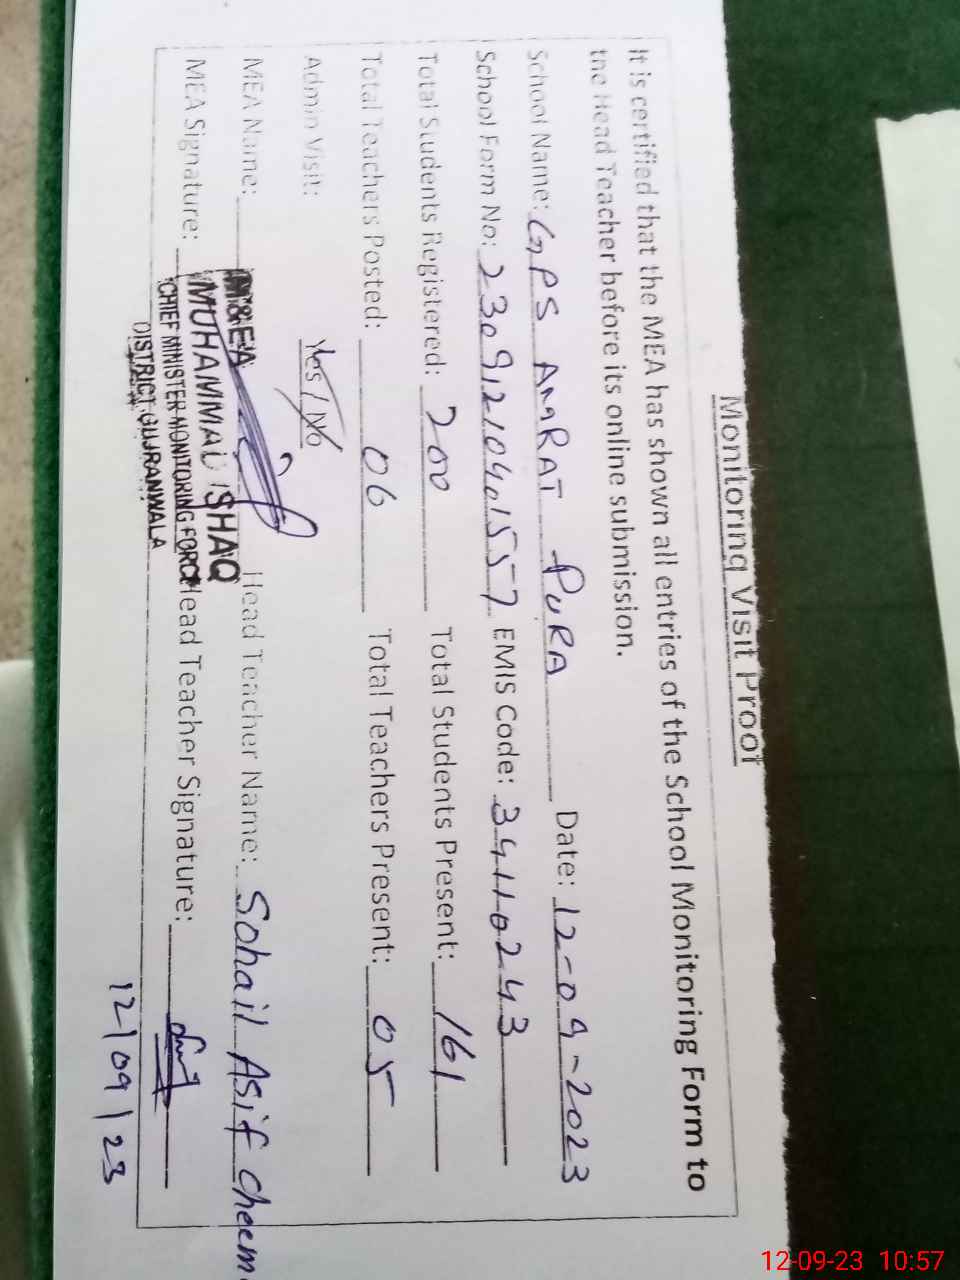 Monitoring Visit Proof
It is certified that the MEA has shown all entries of the School Monitoring Form to
the Head Teacher before its online submission.
School Name: GPS AMRAT PURA Date: 12-09-2023
School Form No: 23091210401557 EMIS Code: 34110243
Total Students Registered: 200 Total Students Present: 161
Total Teachers Posted: 06 Total Teachers Present: 05
Admin Visit: Yes / No
MEA Name: Head Teacher Name: Sohail Asif Cheem
MEA Signature: Head Teacher Signature:
M&EA
MUHAMMAD ISHAQ
CHIEF MINISTER MONITORING FORCE
DISTRICT GUJRANWALA
12/09/23
12-09-23 10:57